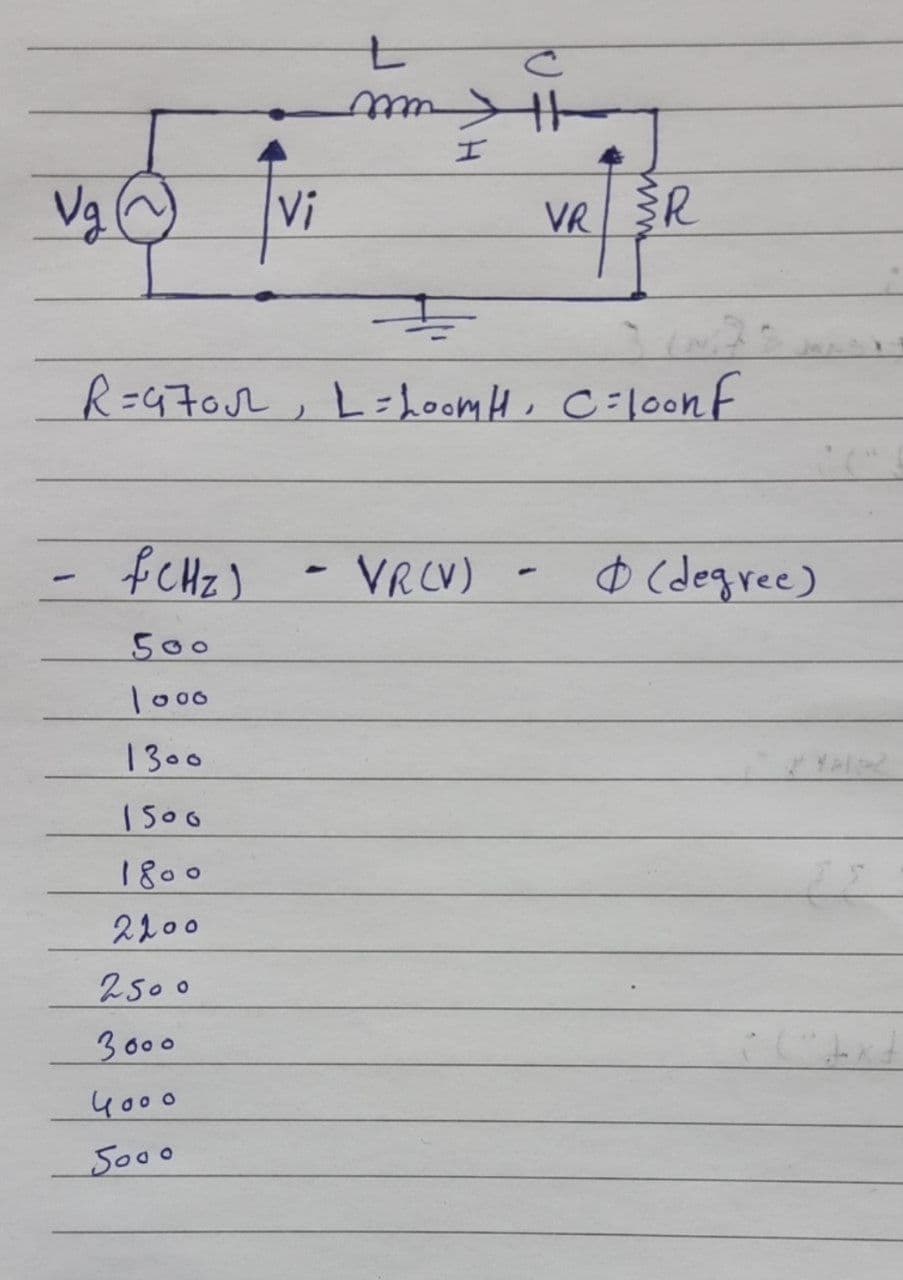 L
C
I
Vg
Vi
VR
R
R=470Ω , L=100mH , C=100nF
- f(Hz) - VR(V) - Φ (degree)
500
1000
1300
1500
1800
2200
2500
3000
4000
5000